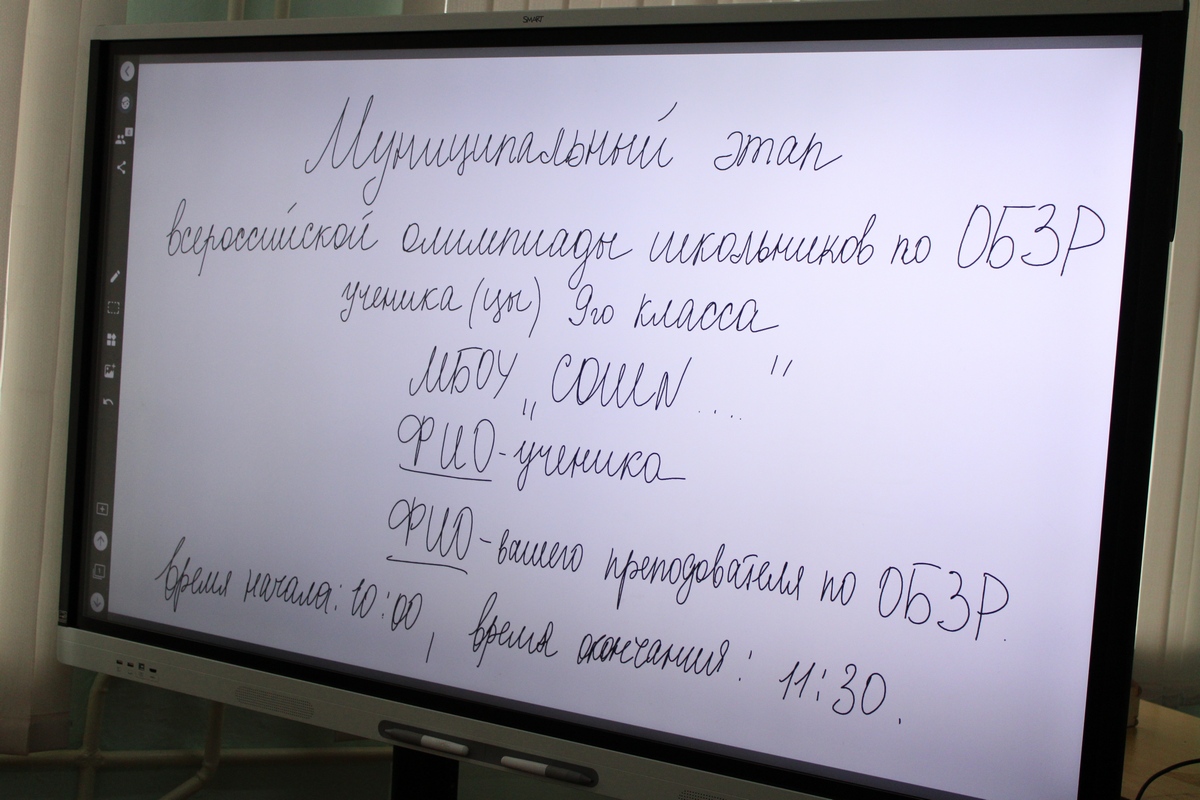 SMART
Муниципальный этап
всероссийской олимпиады школьников по ОБЗР
ученика (цы) 9го класса
МБОУ „СОШN .... "
ФИО - ученика
ФИО - вашего преподователя по ОБЗР.
время начала: 10:00, время окончания: 11:30.